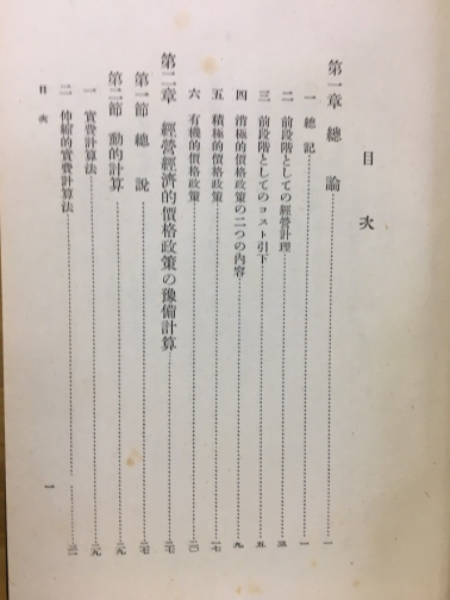 目次
第一章 總論 一
一 總記 一
二 前段階としての經營計理 三
三 前段階としてのコスト引下 五
四 消極的價格政策の二つの内容 九
五 積極的價格政策 一七
六 有機的價格政策 二〇
第二章 經營經済的價格政策の豫備計算 二七
第一節 總說 二七
第二節 動的計算 二九
一 實費計算法 二九
二 伸縮的實費計算法
目次 一